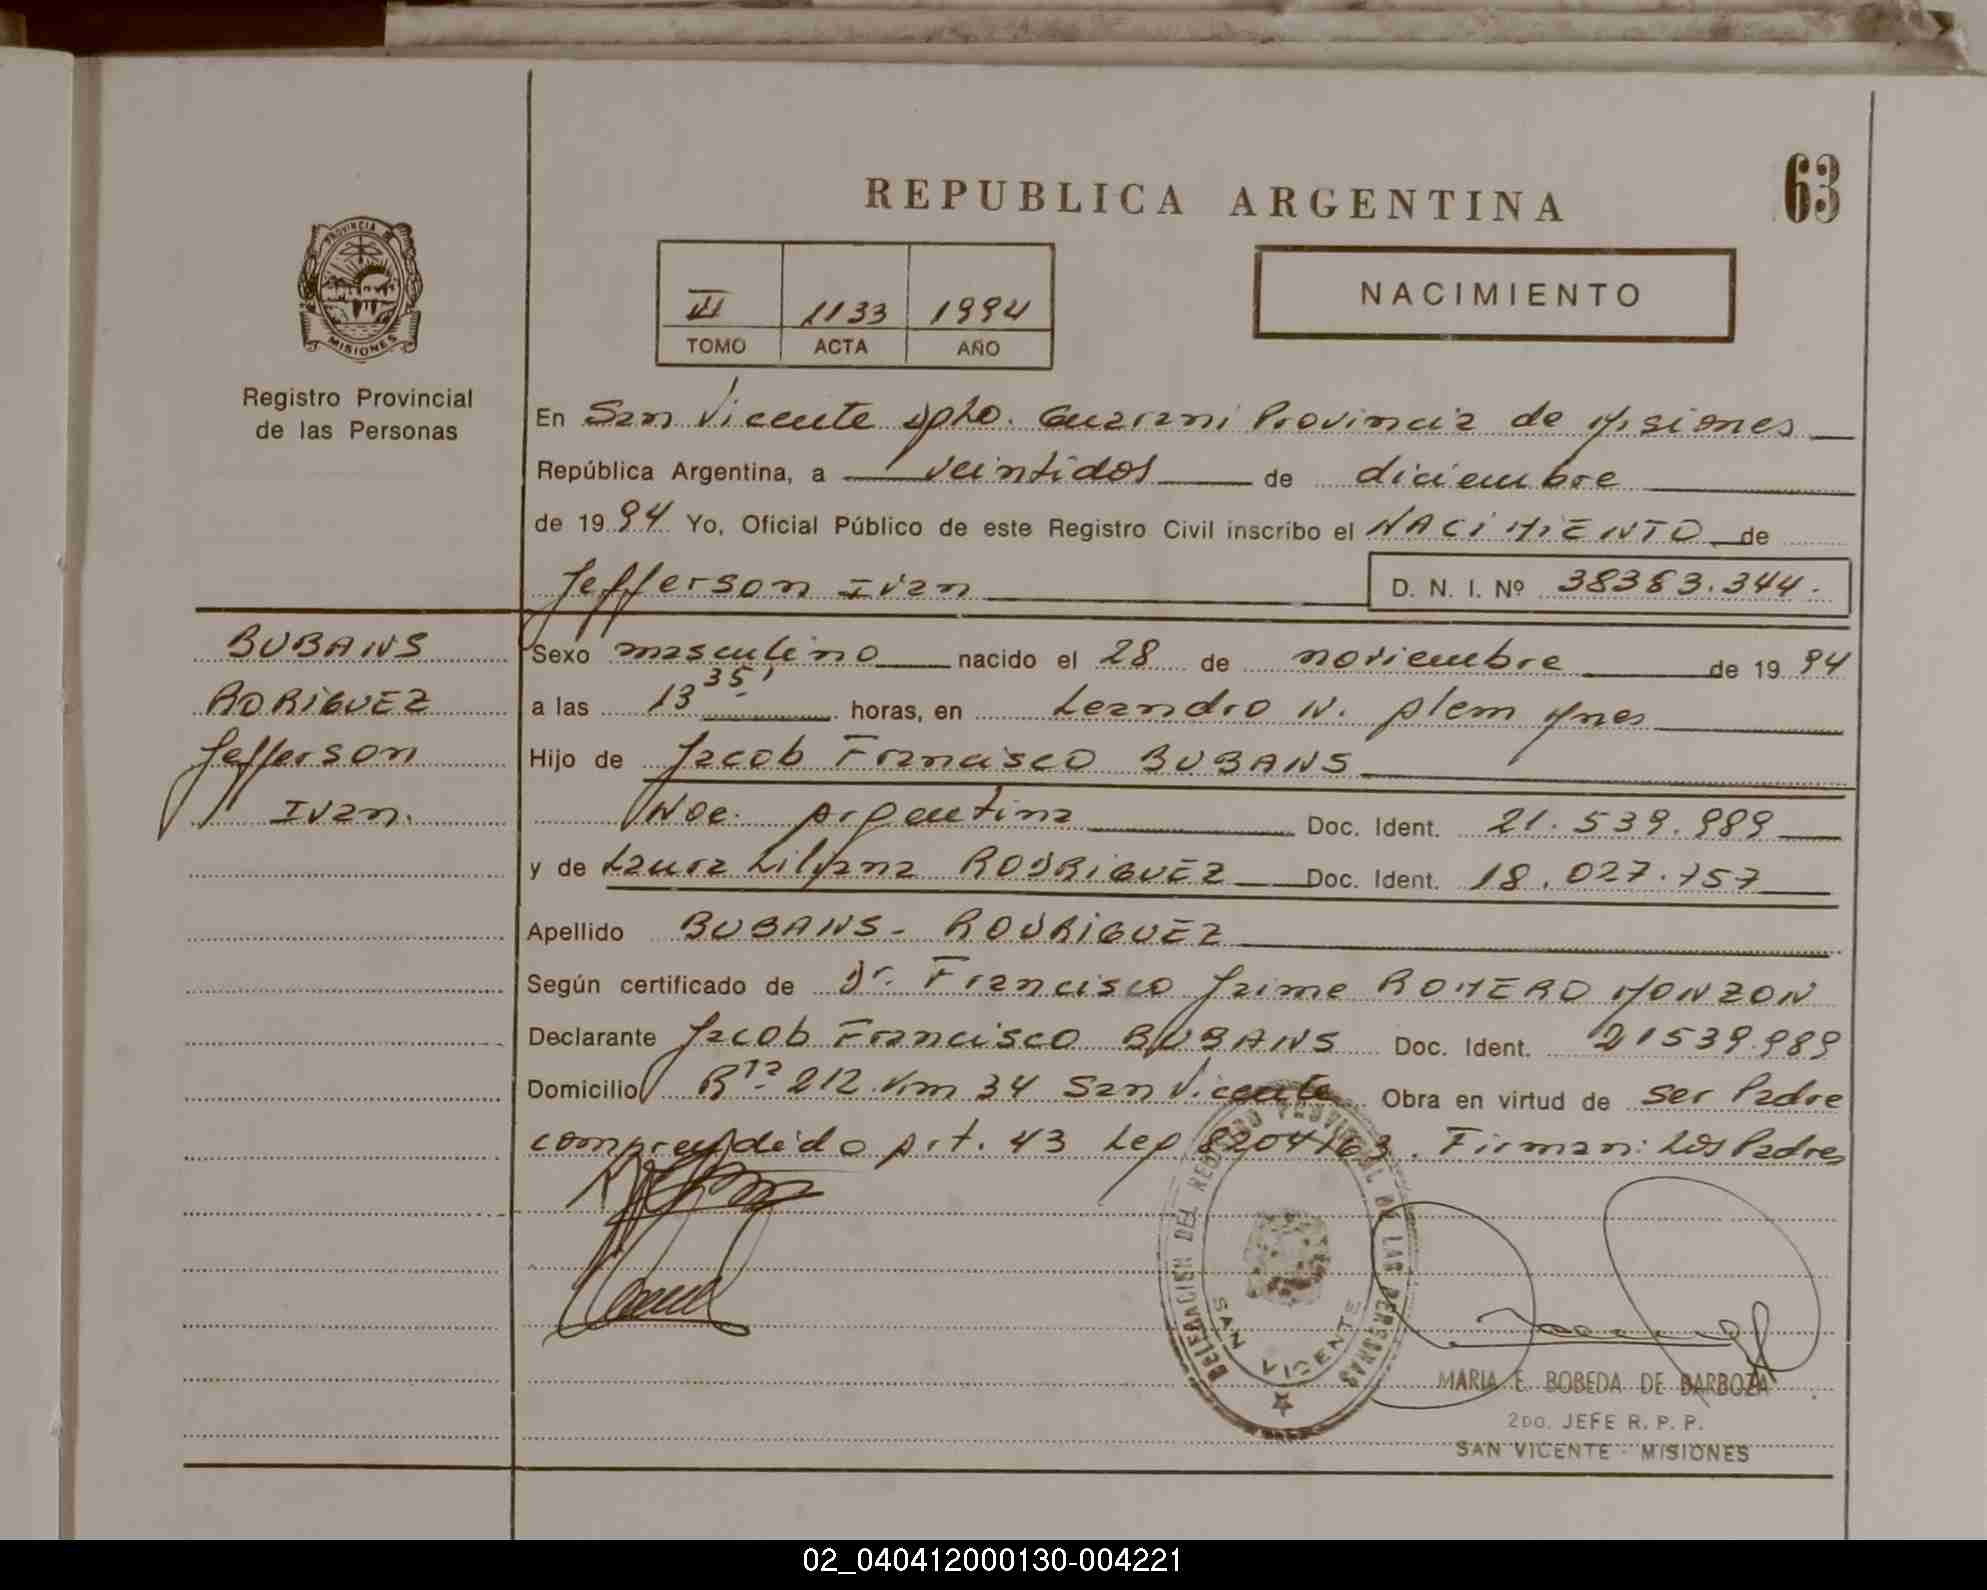 63
REPUBLICA ARGENTINA
PROVINCIA DE
MISIONES
III 1133 1994
TOMO ACTA AÑO
NACIMIENTO
Registro Provincial
de las Personas
En San Vicente Dpto. Guarani Provincia de Misiones
República Argentina, a veintidos de diciembre
de 1994 Yo, Oficial Público de este Registro Civil inscribo el NACIMIENTO de
Jefferson Ivan D. N. I. Nº 38383.344.
BUBANS
RODRIGUEZ
Jefferson
Ivan.
Sexo masculino nacido el 28 de noviembre de 1994
a las 13 35' horas, en Leandro N. Alem Mnes
Hijo de Jacob Francisco BUBANS
Nac. Argentina Doc. Ident. 21.539.989
y de Laura Liliana RODRIGUEZ Doc. Ident. 18.027.757
Apellido BUBANS - RODRIGUEZ
Según certificado de Dr. Francisco Jaime ROMERO MONZON
Declarante Jacob Francisco BUBANS Doc. Ident. 21539.989
Domicilio Rta 212 Km 34 San Vicente Obra en virtud de ser Padre
comprendido Art. 43 Ley 8204/63. Firman: Los Padres
DELEGACION DEL REGISTRO PROVINCIAL DE LAS PERSONAS
SAN VICENTE
MARIA E. BOBEDA DE BARBOZA
2DO. JEFE R. P. P.
SAN VICENTE - MISIONES
02_040412000130-004221